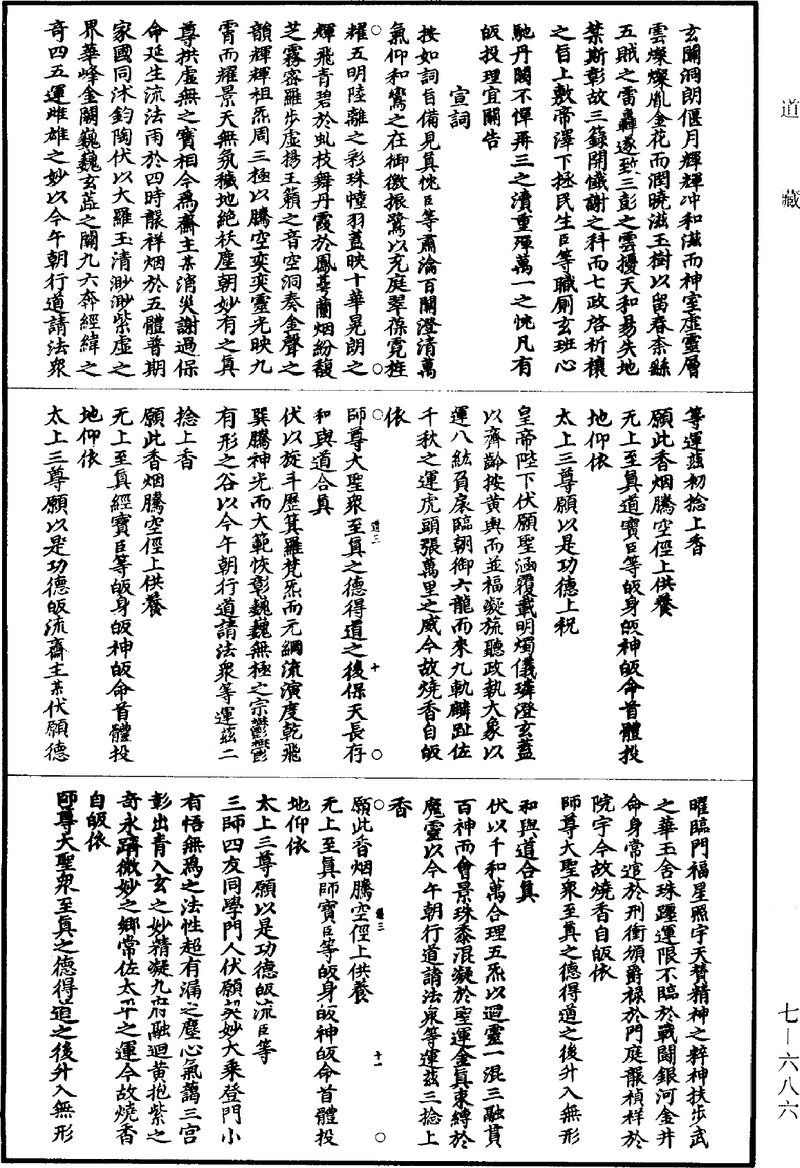 道藏
玄關洞朗偃月輝輝冲和滋而神室虛靈層
雲燦燦胤金花而潤曉滋玉樹以留春柰緣
五賊之雷轟遂致三彭之雲擾天和易失地
禁斯彰故三籙開懴謝之科而七政啓祈禳
之旨上敷帝澤下拯民生臣等職厠玄班心
馳丹闕不憚再三之瀆重殫萬一之忱凡有
皈投理宜關告
宣詞
按如詞旨備見真忱臣等肅淪百關澄清萬
氣仰和鸞之在御微振鷺以充庭翠葆霓旌
耀五明陸離之彩珠幢羽蓋映十華晃朗之
輝飛青碧於虬枝舞丹霞於鳳
芝霧密羅步虛揚玉籟之音空洞奏金聲之
韻輝輝祖炁周三極以騰空奕奕靈光映九
霄而耀景天無氛穢地絶袄塵朝妙有之真
尊拱虛無之寶相今爲齋主某消災謝過保
命延生流法雨於四時靄祥烟於五體普期
家國同沐鈞陶伏以大羅玉清渺渺紫虛之
界華峰金闕巍巍玄藍之關九六奔經緯之
奇四五運雌雄之妙以今午朝行道請法衆
等運茲初捻上香
願此香烟騰空徑上供養
无上至真道寶臣等皈身皈神皈命首體投
地仰依
太上三尊願以是功德上祝
皇帝陛下伏願聖涵覆載明燭儀璘澄玄蓋
以齊齡按黃輿而並福凝旒聽政執大象以
運八紘負扆臨朝御六龍而來九軌麟趾佐
千秋之運虎頭張萬里之威今故燒香自皈
依
師尊大聖衆至真之德得道之後保天長存
和與道合真
伏以旋斗歷箕羅梵炁而元綱流演度乾飛
巽騰神光而大範恢彰巍巍無極之宗鬱鬱
有形之谷以今午朝行道請法衆等運茲二
捻上香
願此香烟騰空徑上供養
无上至真經寶臣等皈身皈神皈命首體投
地仰依
太上三尊願以是功德皈流齋主某伏願德
曜臨門福星照宇天賛精神之粹神扶步武
之華玉舍珠躔運限不臨於戰鬪銀河金井
命身常逭於刑衝頒爵禄於門庭靄禎祥於
院宇今故燒香自皈依
師尊大聖衆至真之德得道之後升入無形
和與道合真
伏以千和萬合理五炁以迴靈一混三融貫
百神而會景珠黍混凝於聖運金真束縛於
魔靈以今午朝行道請法衆等運茲三捻上
香
願此香烟騰空徑上供養
无上至真師寶臣等皈身皈神皈命首體投
地仰依
太上三尊願以是功德皈流臣等
三師四友同學門人伏願契妙大乘登門小
有悟無爲之法性超有漏之塵心氣藹三宫
彰出青入玄之妙精凝九府融迴黃抱紫之
奇永躋微妙之鄉常佐太平之運今故燒香
自皈依
師尊大聖衆至真之德得道之後升入無形
道三
十
道三
十一
七—六八六